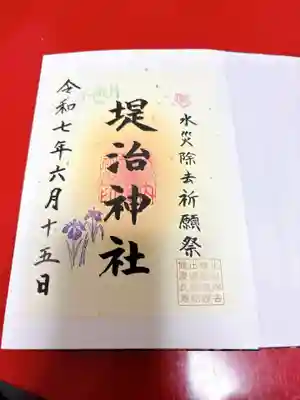 水災除去祈願祭
堤治神社
令和七年六月十五日